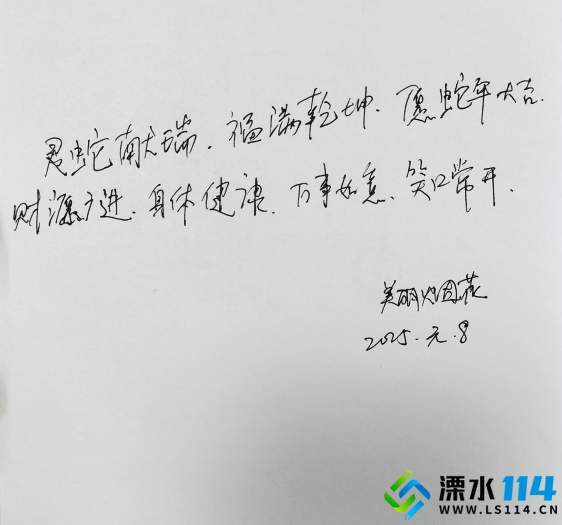 灵蛇献瑞.福满乾坤.愿蛇年大吉.
财源广进.身体健康.万事如意.笑口常开.
美丽的烟花
2025.元.8
溧水114
WWW.LS114.CN